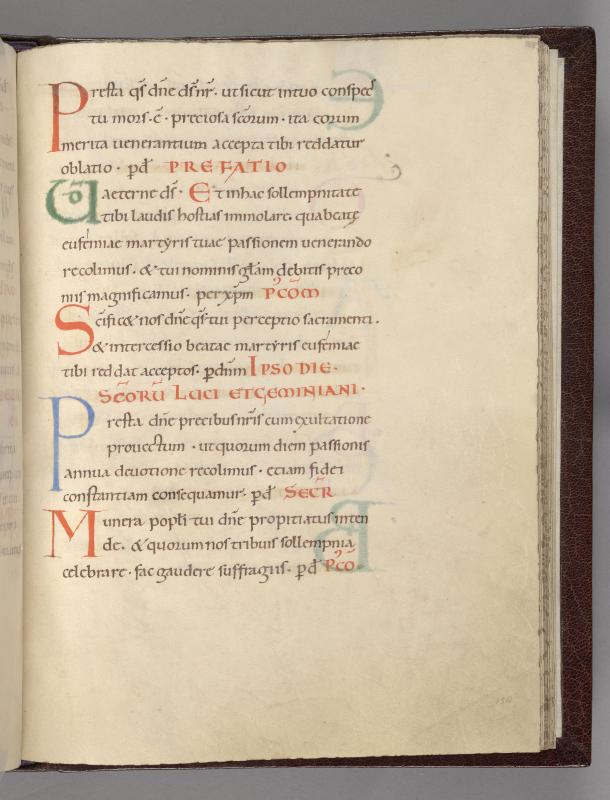 Presta qs dne ds nr. ut sicut in tuo conspec
tu mors ē. preciosa scorum. ita eorum
merita uenerantium accepta tibi reddatur
oblatio. pd PREFATIO
UD aeterne ds. Et in hac sollempnitate
tibi laudis hostias immolare. qua beatę
eufemiae martyris tuae passionem uenerando
recolimus. & tui nominis glam debitis preco
niis magnificamus. per xpm P'COM
Scifica nos dne qs tui perceptio sacramenti.
& intercessio beatae martyris eufemiae
tibi reddat acceptos. p dnm IPSO DIE.
SCORU LUCI ET GEMINIANI.
Presta dne precibus nris cum exultatione
prouectum. ut quorum diem passionis
annua deuotione recolimus. etiam fidei
constantiam consequamur. pd SECR
Munera popli tui dne propitiatus inten
de. & quorum nos tribuis sollempnia
celebrare. fac gaudere suffragiis. pd P'CO.